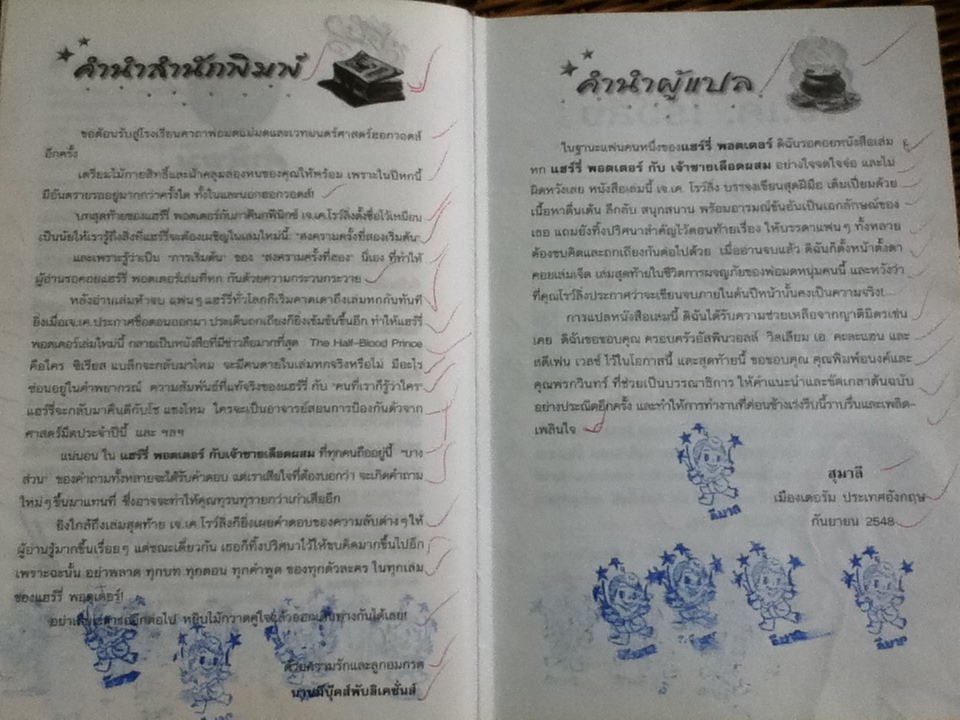 คำนำสำนักพิมพ์
ขอต้อนรับสู่โรงเรียนคาถาพ่อมดแม่มดและเวทมนตร์ศาสตร์ฮอกวอตส์
อีกครั้ง
เตรียมไม้กายสิทธิ์และผ้าคลุมล่องหนของคุณให้พร้อม เพราะในปีหกนี้
มีอันตรายรออยู่มากกว่าครั้งใด ทั้งในและนอกฮอกวอตส์!
บทสุดท้ายของแฮร์รี่ พอตเตอร์กับภาคีนกฟีนิกซ์ เจ.เค.โรว์ลิ่งตั้งชื่อไว้เหมือน
เป็นนัยให้เรารู้ถึงสิ่งที่แฮร์รี่จะต้องเผชิญในเล่มใหม่นี้: "สงครามครั้งที่สองเริ่มต้น"
และเพราะรู้ว่าเป็น "การเริ่มต้น" ของ "สงครามครั้งที่สอง" นี่เอง ที่ทำให้
ผู้อ่านรอคอยแฮร์รี่ พอตเตอร์เล่มที่หก กันด้วยความกระวนกระวาย
หลังอ่านเล่มห้าจบ แฟนๆแฮร์รี่ทั่วโลกก็เริ่มคาดเดาถึงเล่มหกกันทันที
ยิ่งเมื่อเจ.เค.ประกาศชื่อตอนออกมา ประเด็นถกเถียงก็ยิ่งเข้มข้นขึ้นอีก ทำให้แฮร์รี่
พอตเตอร์เล่มใหม่นี้ กลายเป็นหนังสือที่มีข่าวลือมากที่สุด The Half-Blood Prince
คือใคร ซิเรียส แบล็กจะกลับมาไหม จะมีคนตายในเล่มหกจริงหรือไม่ มีอะไร
ซ่อนอยู่ในคำพยากรณ์ ความสัมพันธ์ที่แท้จริงของแฮร์รี่ กับ "คนที่เราก็รู้ว่าใคร"
แฮร์รี่จะกลับมาคืนดีกับโช แชงไหม ใครจะเป็นอาจารย์สอนการป้องกันตัวจาก
ศาสตร์มืดประจำปีนี้ และ ฯลฯ
แน่นอน ใน แฮร์รี่ พอตเตอร์ กับเจ้าชายเลือดผสม ที่ทุกคนถืออยู่นี้ "บาง
ส่วน" ของคำถามทั้งหลายจะได้รับคำตอบ แต่เราเสียใจที่ต้องบอกว่า จะเกิดคำถาม
ใหม่ๆขึ้นมาแทนที่ ซึ่งอาจจะทำให้คุณทุรนทุรายกว่าเก่าเสียอีก
ยิ่งใกล้ถึงเล่มสุดท้าย เจ.เค.โรว์ลิ่งก็ยิ่งเผยคำตอบของความลับต่างๆให้
ผู้อ่านรู้มากขึ้นเรื่อยๆ แต่ขณะเดียวกัน เธอก็ทิ้งปริศนาไว้ให้ขบคิดมากขึ้นไปอีก
เพราะฉะนั้น อย่าพลาด ทุกบท ทุกตอน ทุกคำพูด ของทุกตัวละคร ในทุกเล่ม
ของแฮร์รี่ พอตเตอร์!
หยิบไม้กวาดคู่ใจแล้วออกเดินทางกันได้เลย!
ด้วยความรักและลูกอมกรด
นานมีบุ๊คส์พับลิเคชั่นส์
คำนำผู้แปล
ในฐานะแฟนคนหนึ่งของแฮร์รี่ พอตเตอร์ ดิฉันรอคอยหนังสือเล่ม
หก แฮร์รี่ พอตเตอร์ กับ เจ้าชายเลือดผสม อย่างใจจดใจจ่อ และไม่
ผิดหวังเลย หนังสือเล่มนี้ เจ.เค. โรว์ลิ่ง บรรจงเขียนสุดฝีมือ เต็มเปี่ยมด้วย
เนื้อหาตื่นเต้น ลึกลับ สนุกสนาน พร้อมอารมณ์ขันอันเป็นเอกลักษณ์ของ
เธอ แถมยังทิ้งปริศนาสำคัญไว้ตอนท้ายเรื่อง ให้บรรดาแฟนๆ ทั้งหลาย
ต้องขบคิดและถกเถียงกันต่อไปด้วย เมื่ออ่านจบแล้ว ดิฉันก็ตั้งหน้าตั้งตา
คอยเล่มเจ็ด เล่มสุดท้ายในชีวิตการผจญภัยของพ่อมดหนุ่มคนนี้ และหวังว่า
ที่คุณโรว์ลิ่งประกาศว่าจะเขียนจบภายในต้นปีหน้านั้นคงเป็นความจริง!...
การแปลหนังสือเล่มนี้ ดิฉันได้รับความช่วยเหลือจากญาติมิตรเช่น
เคย ดิฉันขอขอบคุณ ครอบครัวอัสพินวอลล์ วิลเลียม เอ. คะละแฮน และ
สตีเฟ่น เวลช์ ไว้ในโอกาสนี้ และสุดท้ายนี้ ขอขอบคุณ คุณพิมพ์อนงค์และ
คุณพรกวินทร์ ที่ช่วยเป็นบรรณาธิการ ให้คำแนะนำและขัดเกลาต้นฉบับ
อย่างประณีตอีกครั้ง และทำให้การทำงานที่ค่อนข้างเร่งรีบนี้ราบรื่นและเพลิด-
เพลินใจ
ดีมาก
สุมาลี
เมืองเดอรัม ประเทศอังกฤษ
กันยายน 2548
ดีมาก
ดีมาก